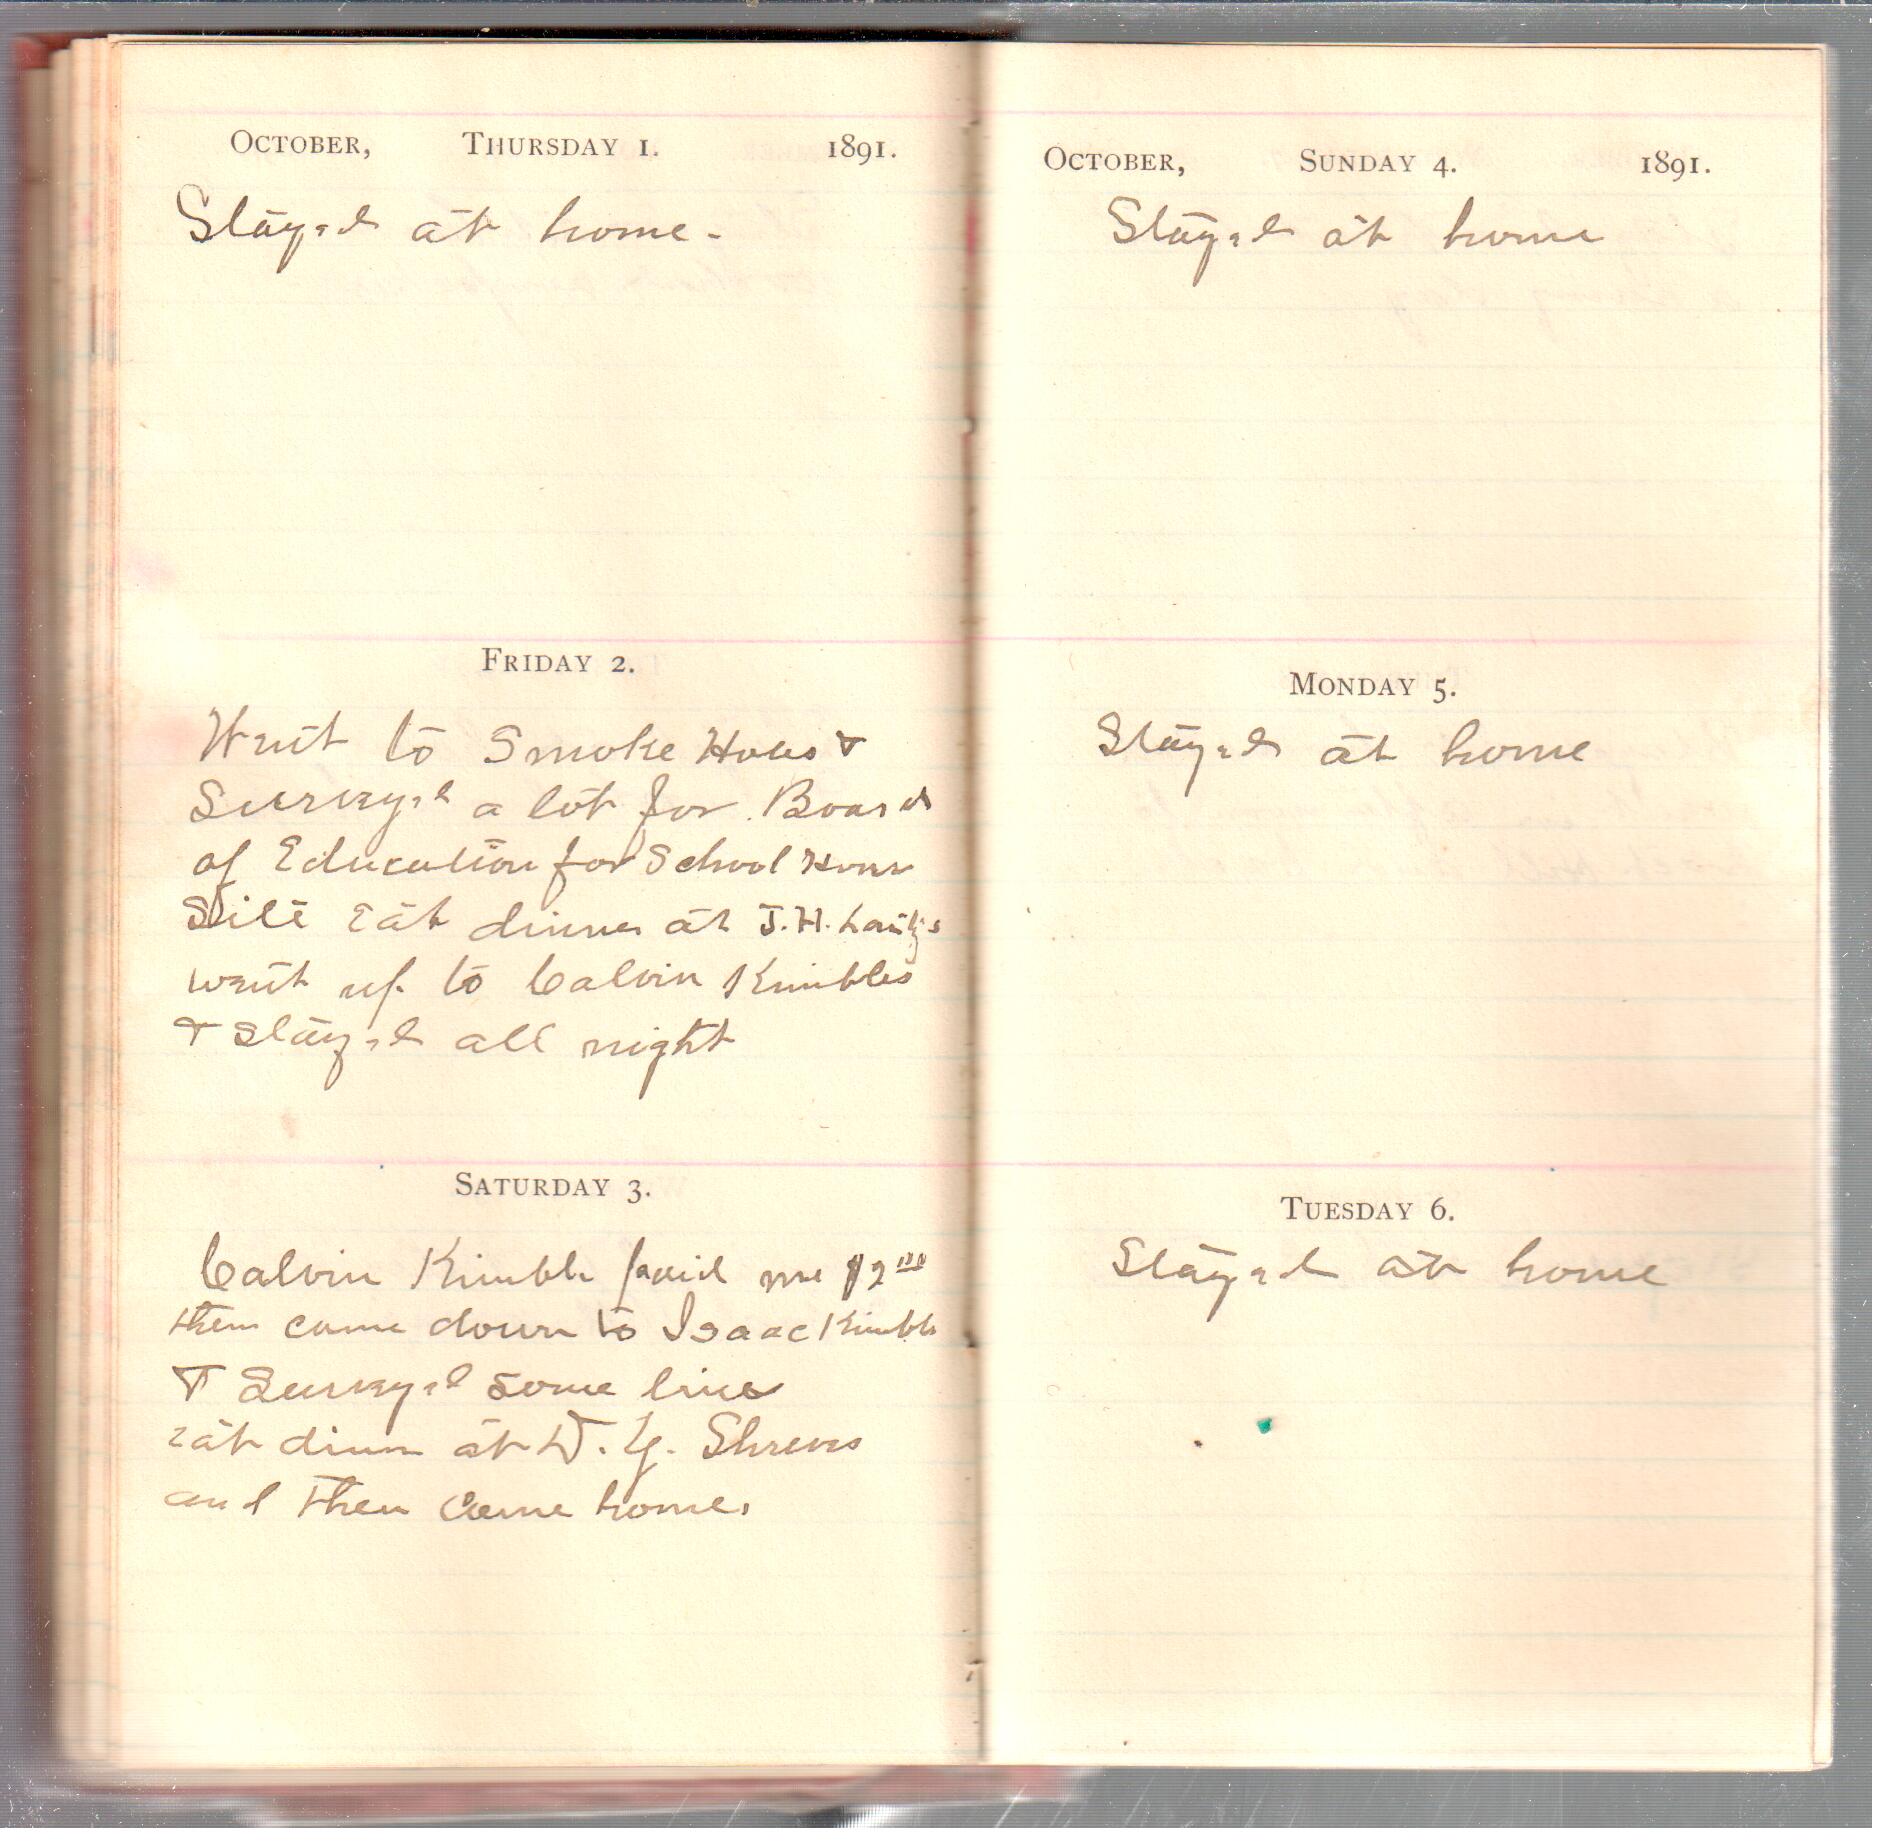 OCTOBER, THURSDAY 1. 1891.
Stayed at home.
FRIDAY 2.
Went to Smoke Hole &
Surveyed a lot for Board
of Education for School House
Site Eat dinner at J.H.
went up to Calvin Kimbles
& Stayed all night
SATURDAY 3.
Calvin Kimble paid me $2.00
then came down to Isaac Kimble
& Surveyed some lines
eat dinner at D. G. Shreves
and then came home.
OCTOBER, SUNDAY 4. 1891.
Stayed at home
MONDAY 5.
Stayed at home
TUESDAY 6.
Stayed at home